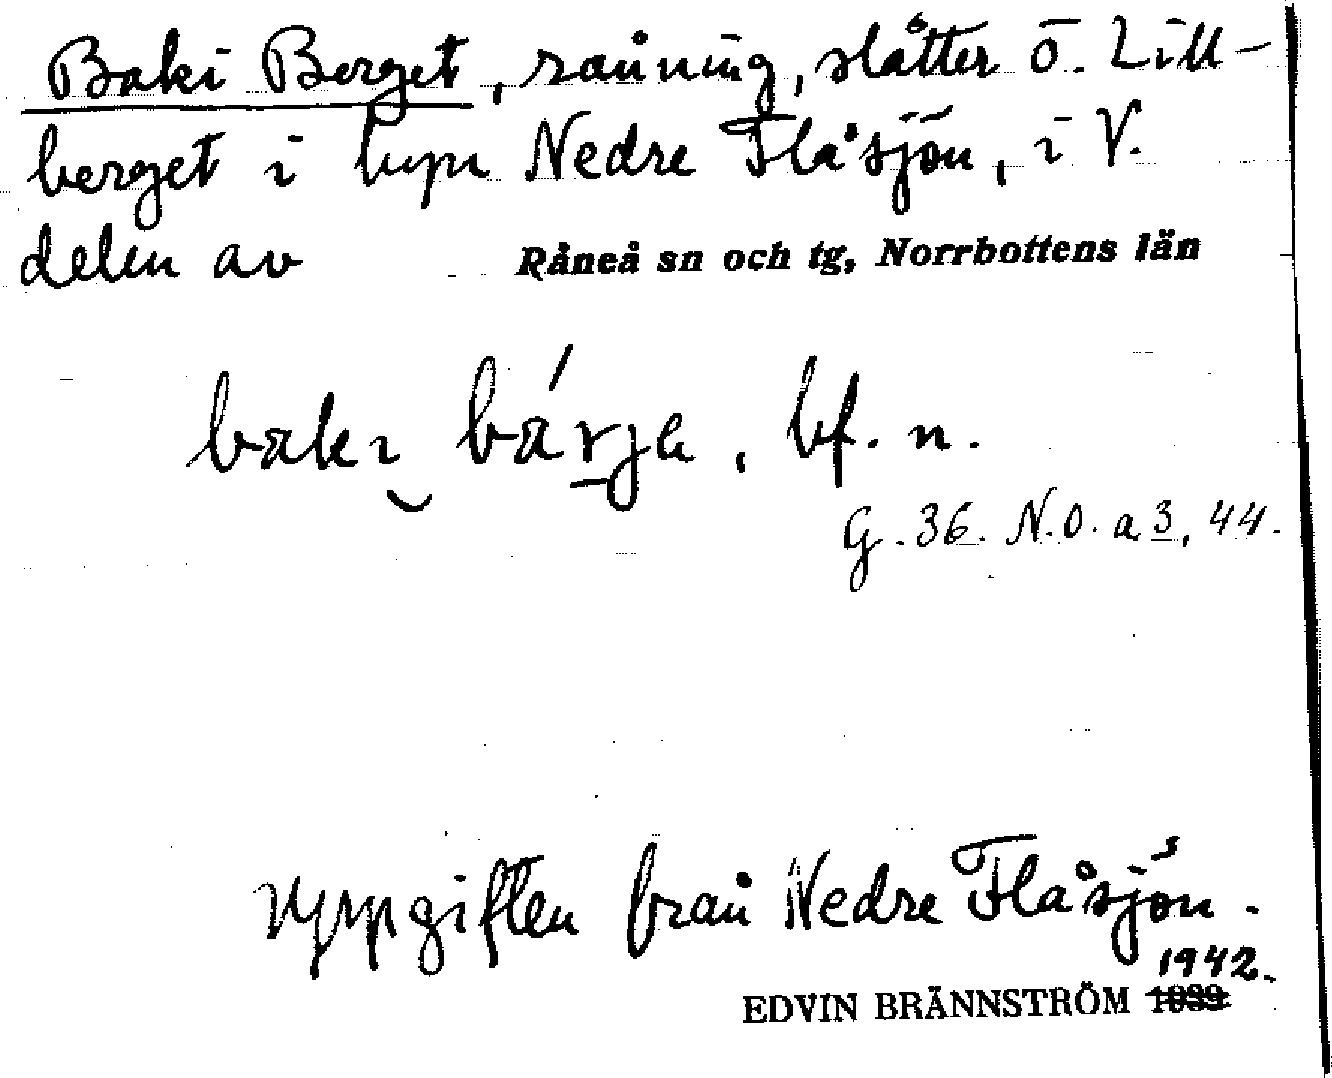 Baki Berget, råning, slåtter ö. Lill-
berget i byn Nedre Flåsjön, i V.
delen av Råneå sn och tg, Norrbottens län
baki bárje, bf. n.
G. 36. N.O. a 3, 44.
Uppgiften från Nedre Flåsjön.
1942.
EDVIN BRÄNNSTRÖM 1939